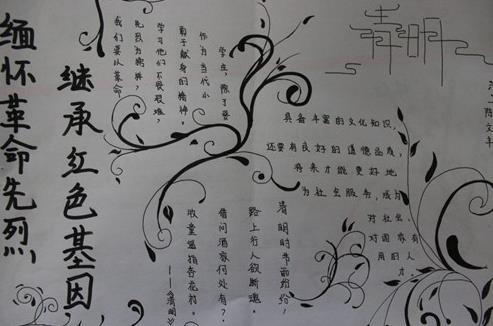 清明
缅怀革命先烈，
继承红色基因
我们要从革命
先烈为榜样，
学习他们不畏艰难，
勇于献身的精神
作为当代小
学生，除了要
具备丰富的文化知识，
还要有良好的道德品质，
将来才能更好地
为社会服务，成为
对社会
对国家有
用的人
才。
清明时节雨纷纷，
路上行人欲断魂。
借问酒家何处有？
牧童遥指杏花村。
——清明